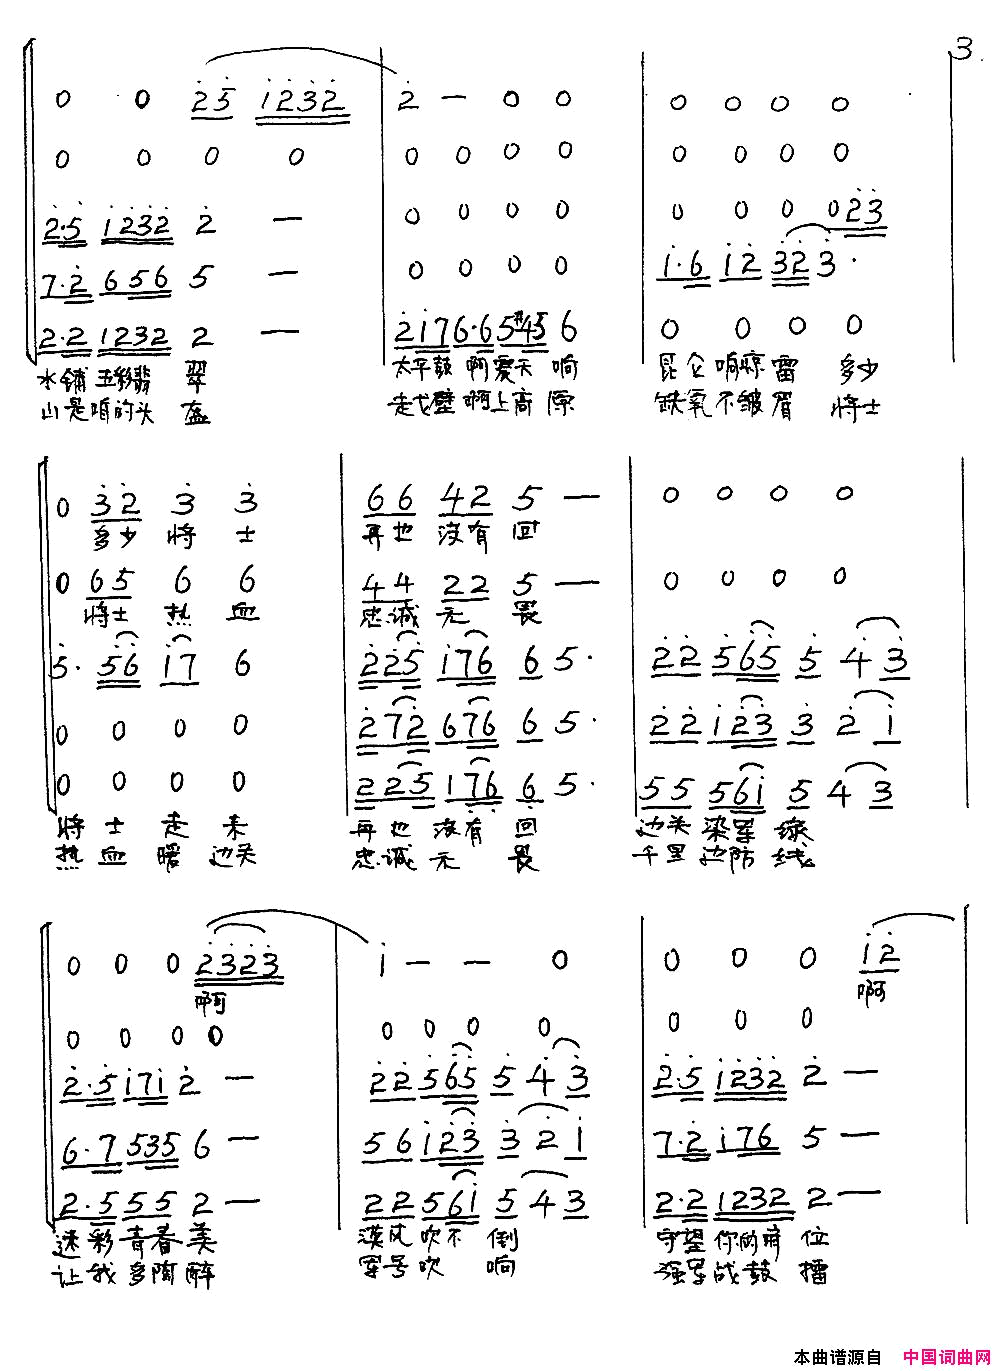 3.
0 0 2 5 1 2 3 2 2 — 0 0 0 0 0 0
0 0 0 0 0 0 0 0 0 0 0 0
2·5 1 2 3 2 2 — 0 0 0 0 0 0 0 0 2 3
7·2 6 5 6 5 — 0 0 0 0 1·6 1 2 3 2 3·
2·2 1 2 3 2 2 — 2 1 7 6·6 5 #4 5 6 0 0 0 0
水铺五彩翡 翠 太平鼓 啊 震天 响 昆仑 响惊 雷 多少
山是咱的头 盔 走戈壁 啊 上高 原 缺氧 不皱 眉 将士
0 3 2 3 3 6 6 4 2 5 — 0 0 0 0
多少 将 士 再也 没有 回
0 6 5 6 6 4 4 2 2 5 — 0 0 0 0
将士 热 血 忠诚 无 畏
5· 5 6 1 7 6 2 2 5 1 7 6 6 5· 2 2 5 6 5 5 4 3
0 0 0 0 2 7 2 6 7 6 6 5· 2 2 1 2 3 3 2 1
0 0 0 0 2 2 5 1 7 6 6 5· 5 5 5 6 1 5 4 3
将 士 走 来 再也 没有 回 边关 染军 绿
热 血 暖 边关 忠诚 无 畏 千里 边防 线
0 0 0 2 3 2 3 1 — — 0 0 0 0 1 2
啊 啊
0 0 0 0 0 0 0 0 0 0 0
2·5 1 7 1 2 — 2 2 5 6 5 5 4 3 2·5 1 2 3 2 2 —
6·7 5 3 5 6 — 5 6 1 2 3 3 2 1 7·2 1 7 6 5 —
2·5 5 5 2 — 2 2 5 6 1 5 4 3 2·2 1 2 3 2 2 —
迷彩青春美 漠风 吹不 倒 守望 你的 位
让我多陶醉 军号 吹 响 强军战鼓 擂
本曲谱源自 中国词曲网